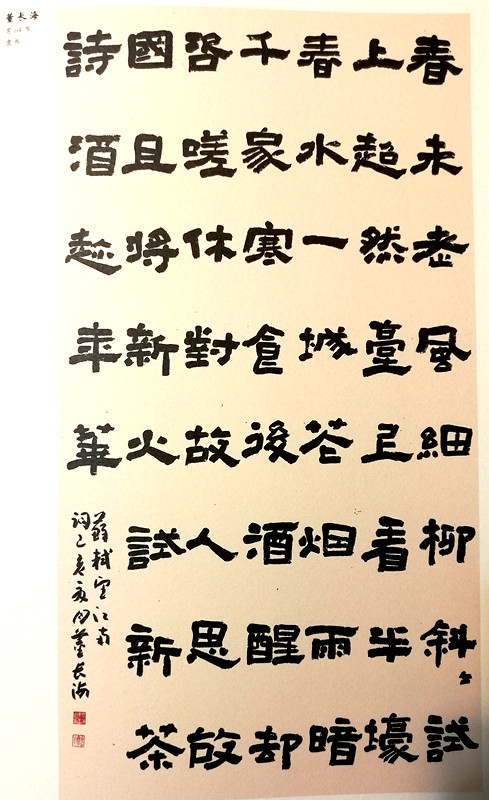 董长海
春未老風細柳斜〻試
上超然臺上看半壕
春水一城花烟雨暗
千家寒食後酒醒却
咨嗟休對故人思故
國且將新火試新茶
詩酒趁年華
蘇軾望江南
詞己亥夏月董长海